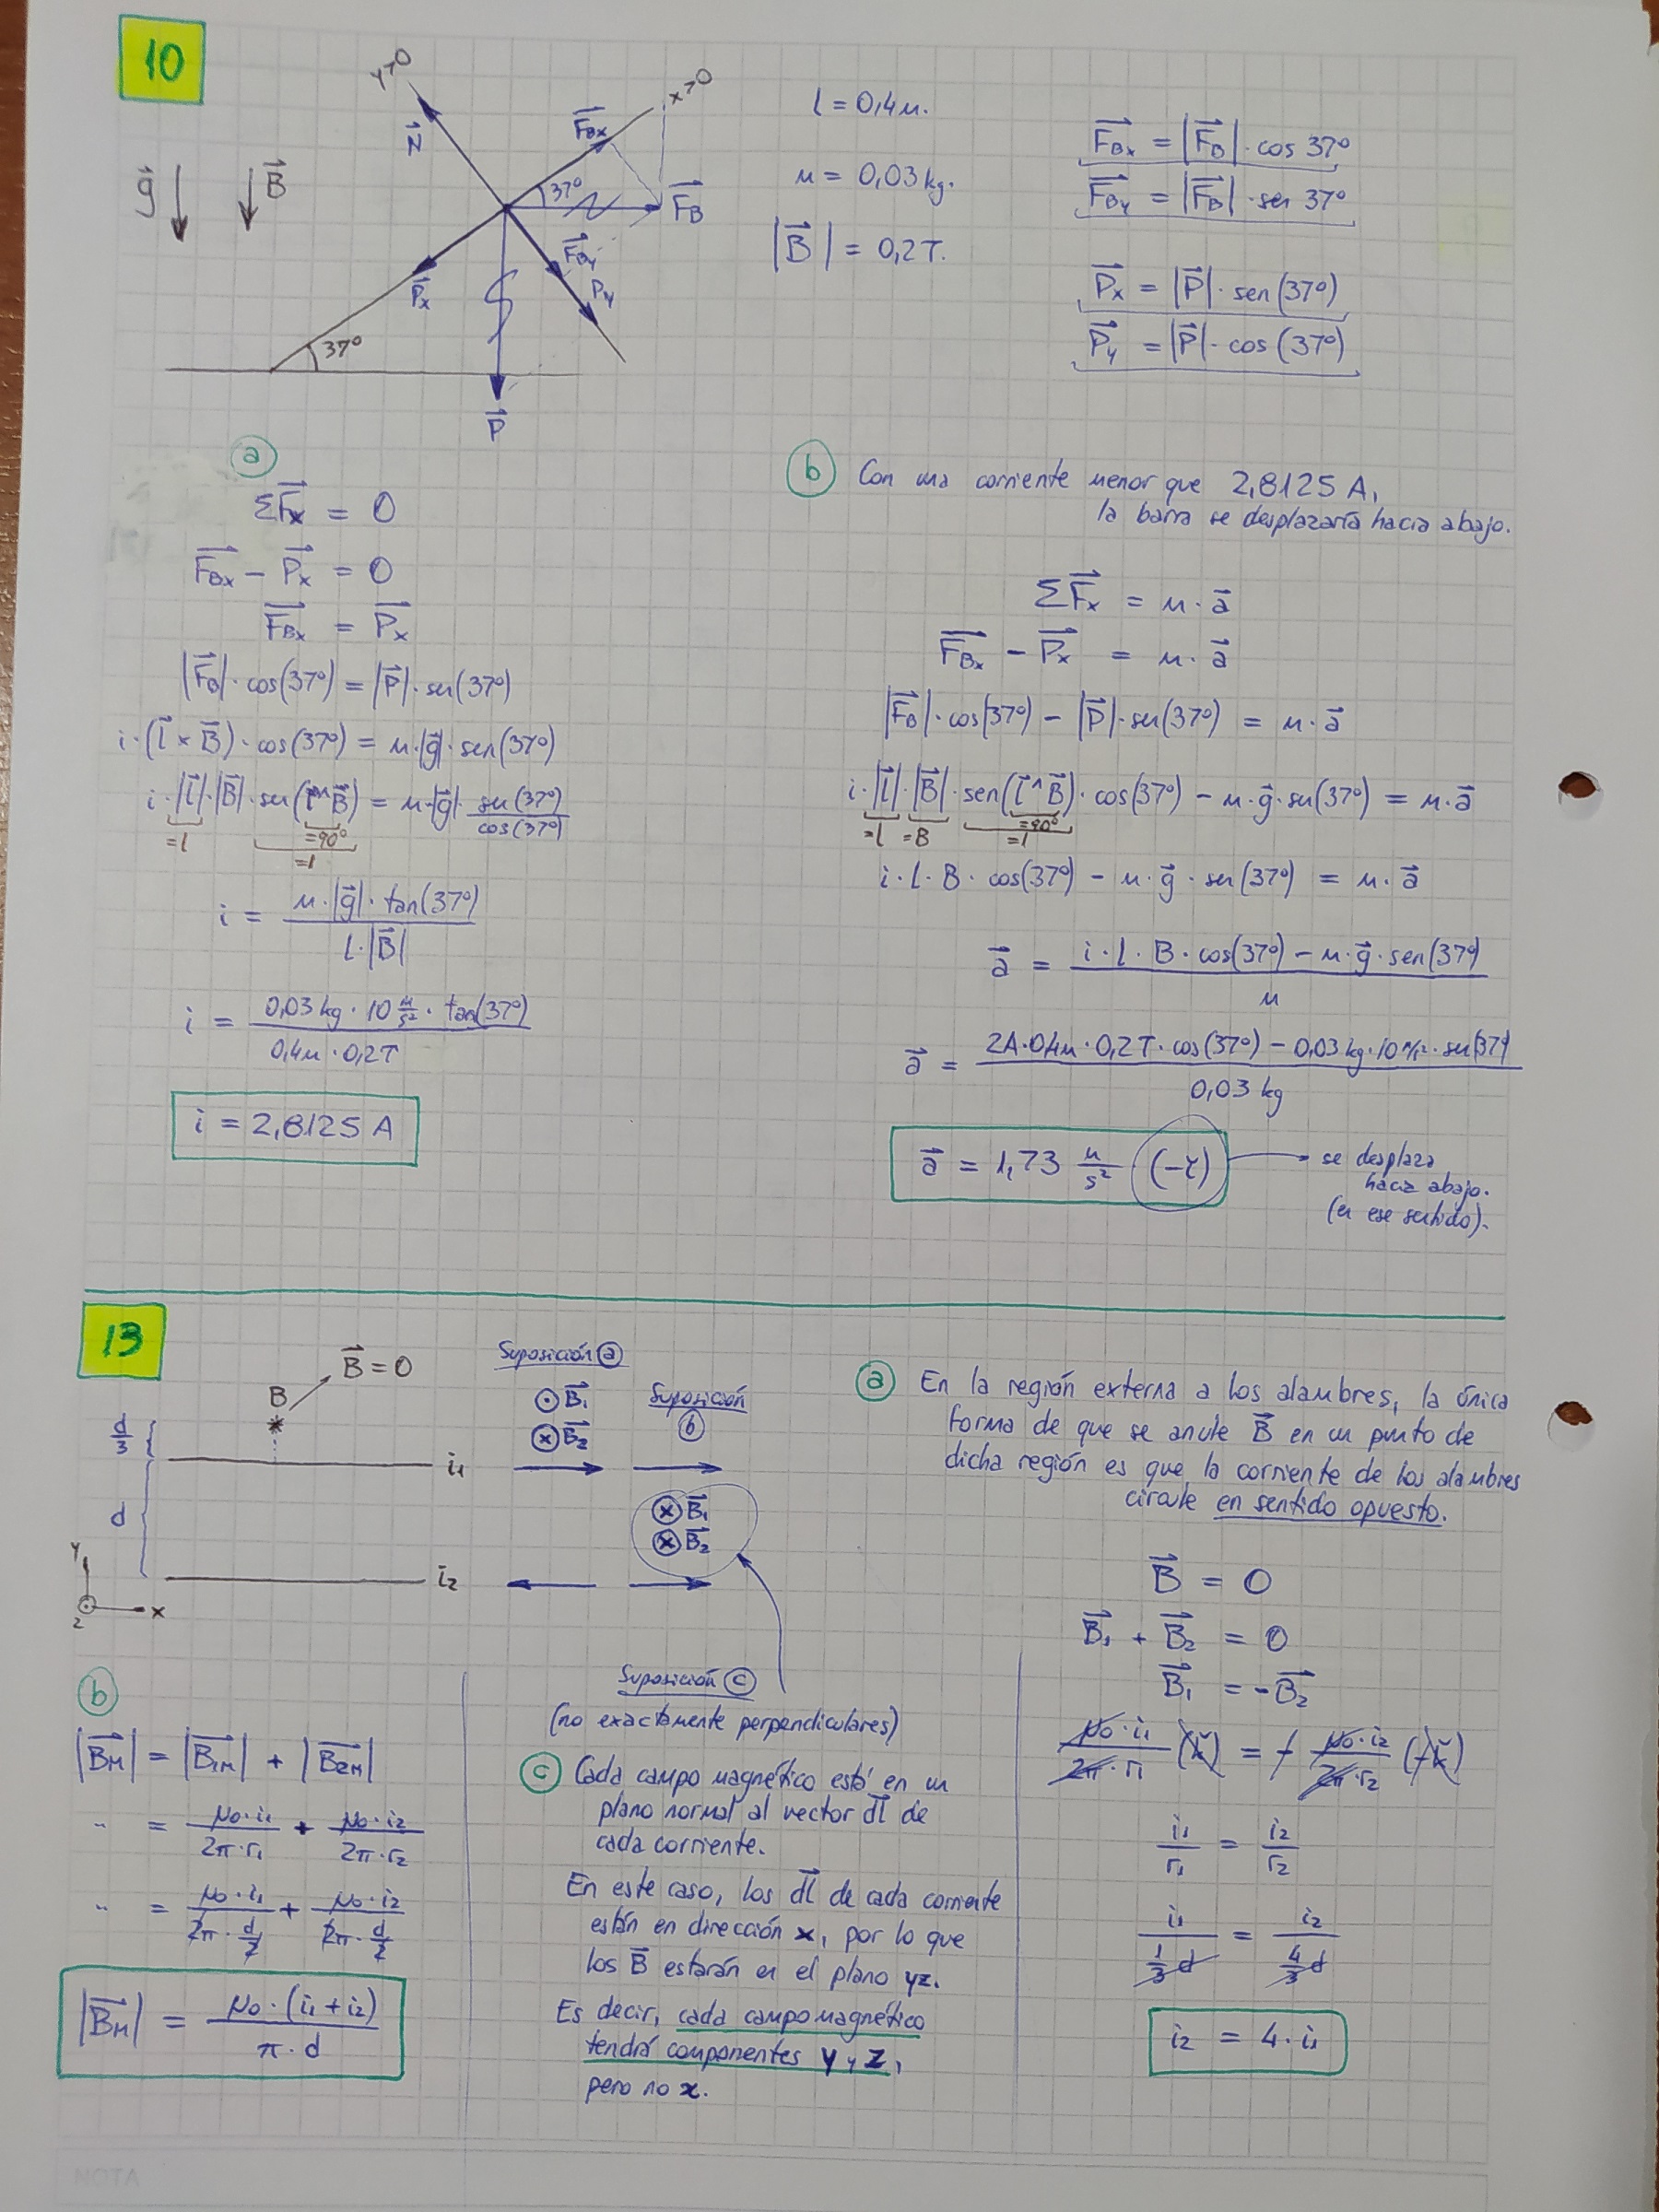 10
y>0
x>0
N⃗
F⃗Bx
g⃗
B⃗
37°
F⃗B
F⃗By
P⃗x
Py
37°
P⃗
l = 0,4m.
m = 0,03 kg.
|B⃗| = 0,2T.
F⃗Bx = |F⃗B| · cos 37°
F⃗By = |F⃗B| · sen 37°
P⃗x = |P⃗| · sen(37°)
P⃗y = |P⃗| · cos(37°)
a
ΣF⃗x = 0
F⃗Bx − P⃗x = 0
F⃗Bx = P⃗x
|F⃗B| · cos(37°) = |P⃗| · sen(37°)
i · (l⃗ × B⃗) · cos(37°) = m·|g⃗| · sen(37°)
i · |l⃗| · |B⃗| · sen(l⃗^B⃗) = m·|g⃗| · sen(37°)/cos(37°)
=l =90°
=1
i = m·|g⃗| · tan(37°) / l·|B⃗|
i = 0,03 kg · 10 m/s² · tan(37°) / 0,4m · 0,2T
i = 2,8125 A
b Con una corriente menor que 2,8125 A,
la barra se desplazaría hacia abajo.
ΣF⃗x = m · a⃗
F⃗Bx − P⃗x = m · a⃗
|F⃗B| · cos(37°) − |P⃗| · sen(37°) = m · a⃗
i · |l⃗| · |B⃗| · sen(l⃗^B⃗) · cos(37°) − m · g⃗ · sen(37°) = m · a⃗
=l =B =90°
=1
i · l · B · cos(37°) − m · g⃗ · sen(37°) = m · a⃗
a⃗ = i · l · B · cos(37°) − m · g⃗ · sen(37°) / m
a⃗ = 2A·0,4m·0,2T·cos(37°) − 0,03 kg·10 m/s²·sen(37°) / 0,03 kg
a⃗ = 1,73 m/s² (−ĭ)
se desplaza
hacia abajo.
(en ese sentido).
13
B
B⃗ = 0
d/3
i1
d
i2
y
z
x
Suposición a
B⃗1
B⃗2
Suposición
b
B⃗1
B⃗2
a En la región externa a los alambres, la única
forma de que se anule B⃗ en un punto de
dicha región es que la corriente de los alambres
circule en sentido opuesto.
B⃗ = 0
B⃗1 + B⃗2 = 0
B⃗1 = −B⃗2
μ0·i1 / 2π·r1 (k̆) = − μ0·i2 / 2π·r2 (−k̆)
i1/r1 = i2/r2
i1 / 1/3 d = i2 / 4/3 d
i2 = 4 · i1
b
|B⃗M| = |B⃗1M| + |B⃗2M|
" = μ0·i1 / 2π·r1 + μ0·i2 / 2π·r2
" = μ0·i1 / 2π·d/2 + μ0·i2 / 2π·d/2
|B⃗M| = μ0·(i1+i2) / π·d
Suposición c
(no exactamente perpendiculares)
c Cada campo magnético está en un
plano normal al vector dl⃗ de
cada corriente.
En este caso, los dl⃗ de cada corriente
están en dirección x, por lo que
los B⃗ estarán en el plano yz.
Es decir, cada campo magnético
tendrá componentes y y z,
pero no x.
NOTA